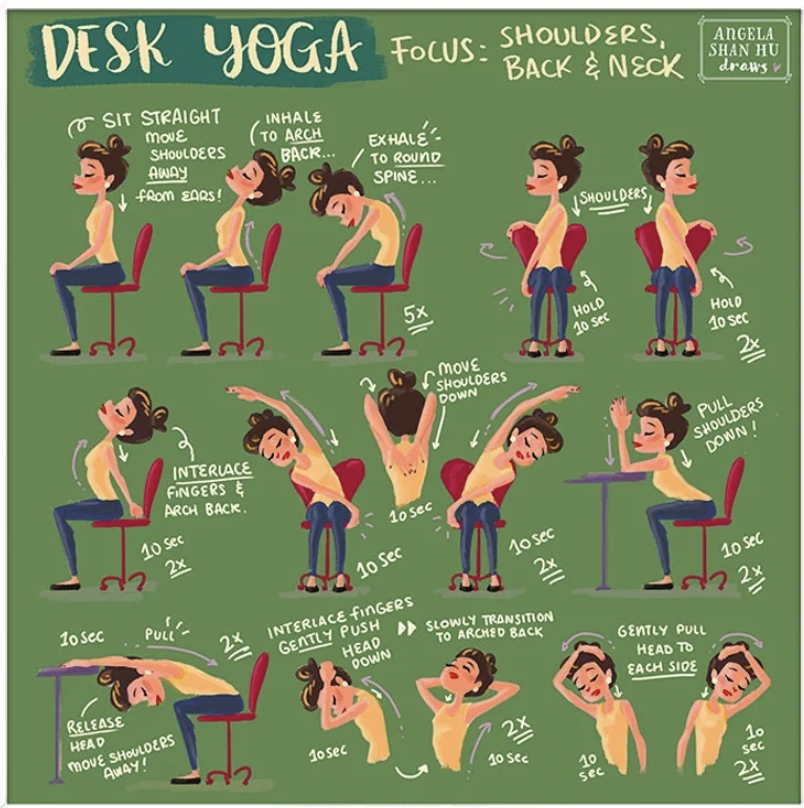 DESK YOGA
FOCUS: SHOULDERS,
BACK & NECK
ANGELA
SHAN HU
draws
SIT STRAIGHT
MOVE
SHOULDERS
AWAY
FROM EARS!
INHALE
TO ARCH
BACK...
EXHALE
TO ROUND
SPINE...
5x
SHOULDERS
HOLD
10 SEC
HOLD
10 SEC
2x
INTERLACE
FINGERS &
ARCH BACK.
10 SEC
2x
10 SEC
MOVE
SHOULDERS
DOWN
10 SEC
10 SEC
2x
PULL
SHOULDERS
DOWN!
10 SEC
2x
10 SEC
PULL
2x
RELEASE
HEAD
MOVE SHOULDERS
AWAY!
INTERLACE FINGERS
GENTLY PUSH
HEAD
DOWN
10 SEC
SLOWLY TRANSITION
TO ARCHED BACK
2x
10 SEC
GENTLY PULL
HEAD TO
EACH SIDE
10
SEC
10
SEC
2x